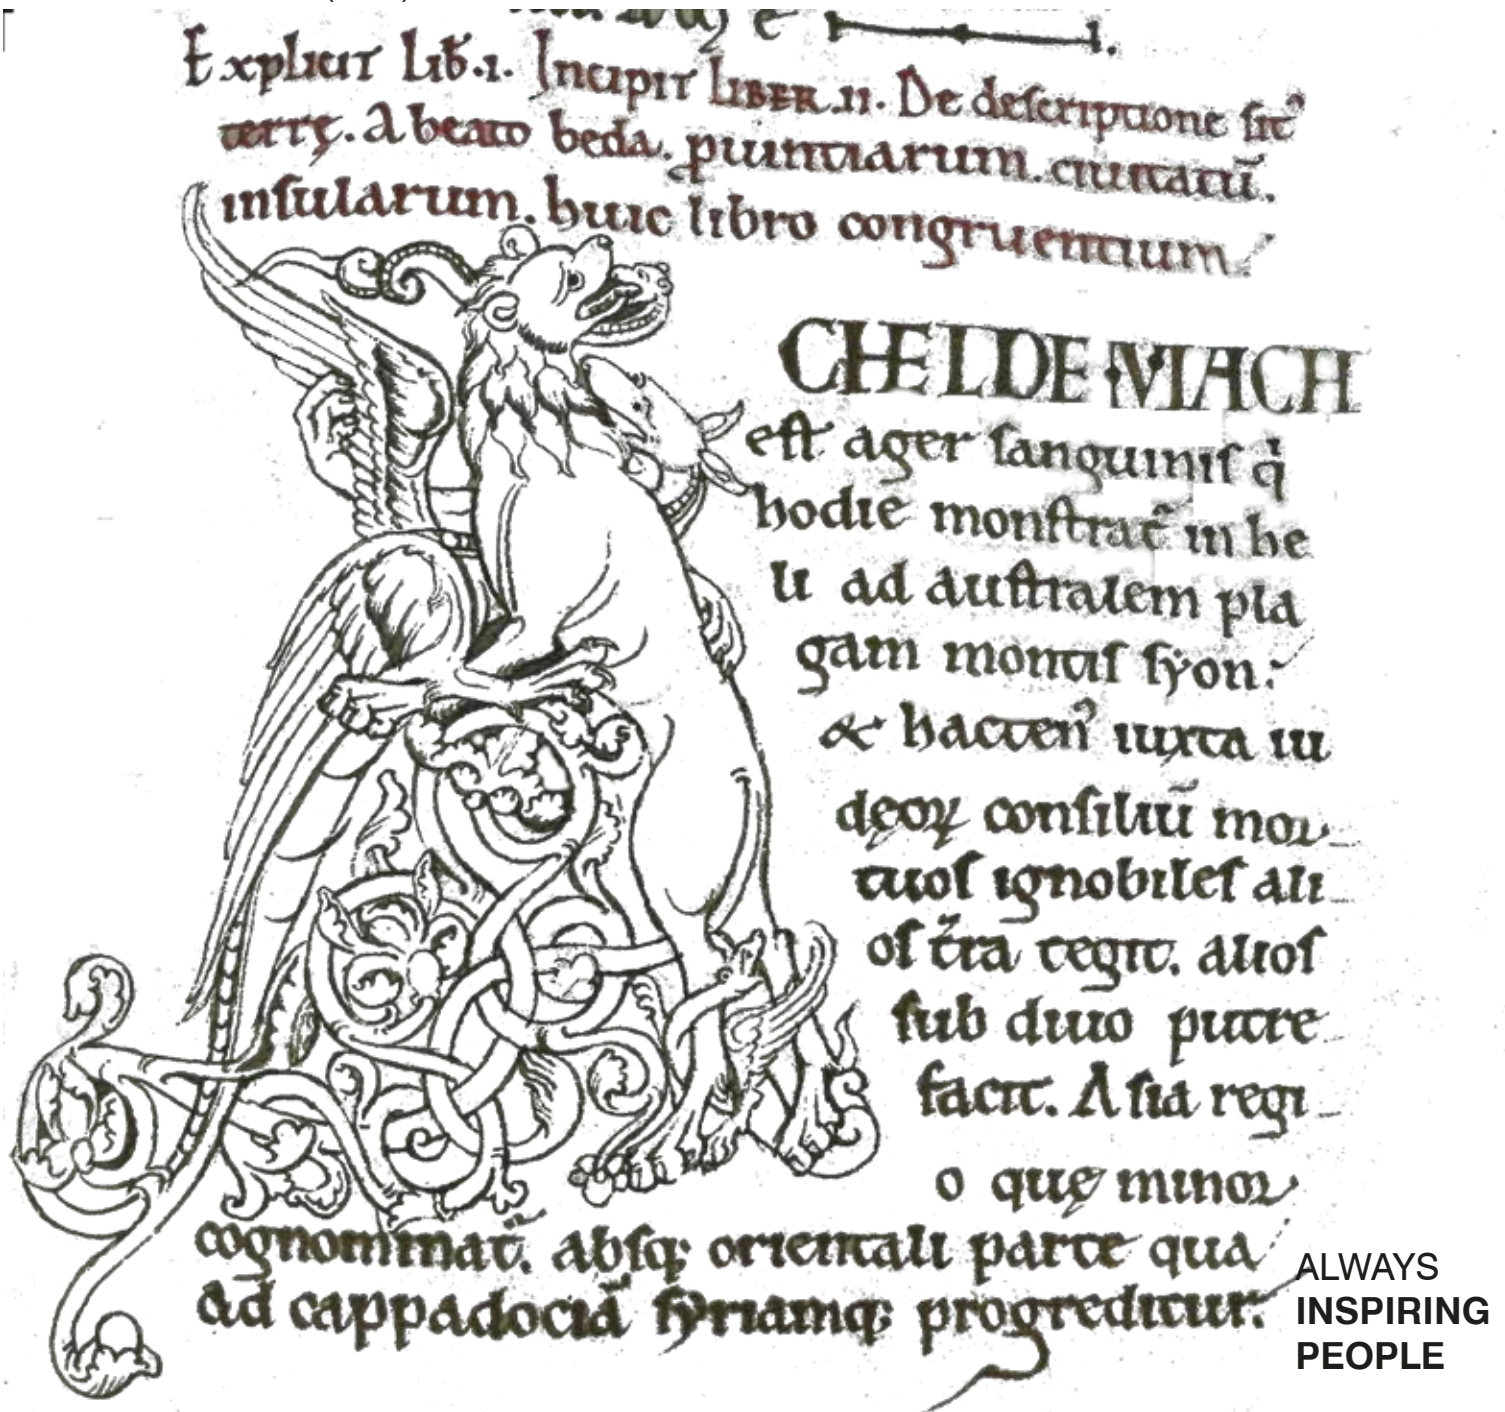 Explicit Lib̄.i. Incipit LIBER.ii. De descriptione sitꝰ
terrę. A beato beda. ꝓuintiarum. ciuitatū.
insularum. huic libro congruentium.
CHELDEMACH
est ager sanguinis q̇
hodie monstrat̄ in he
li ad australem pla
gam montis syon:
& hactenꝰ iuxta iu
dęoꝝ consiliū mor
tuos ignobiles ali
os t̄ra tegit. alios
sub diuo putre
facit. Asia regi
o quę minor
cognominat̄. absq; orientali parte qua
ad cappadociā syriamq; progreditur.
ALWAYS
INSPIRING
PEOPLE